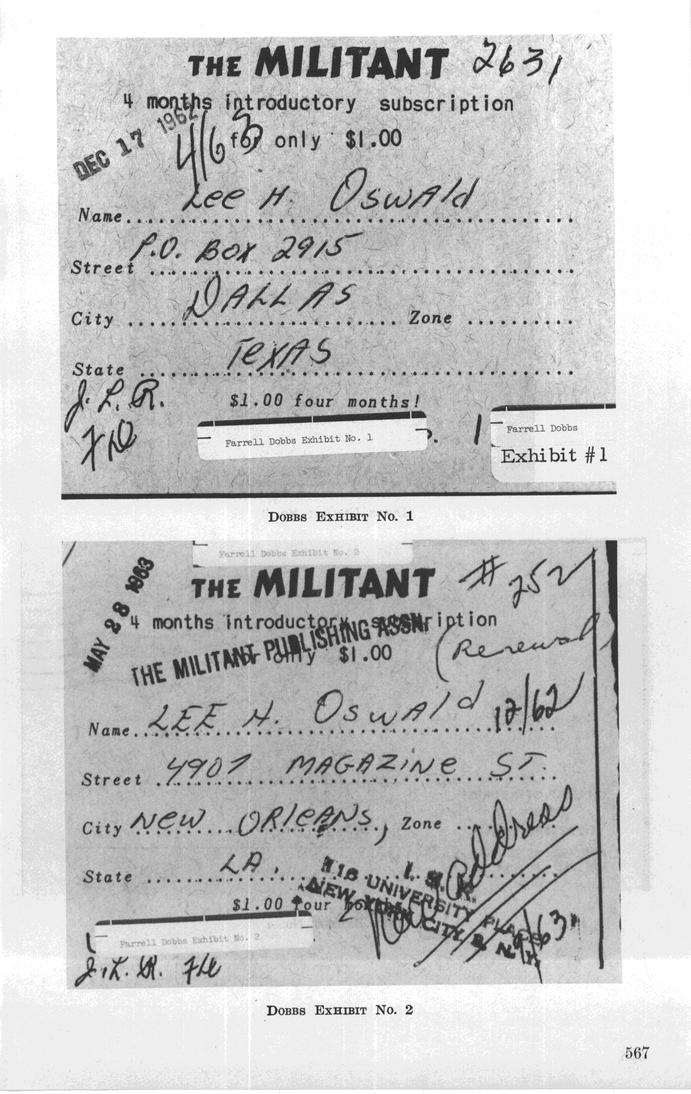 THE MILITANT 2631
4 months introductory subscription
DEC 17 1962
4/63
for only $1.00
Name Lee H. Oswald
Street P.O. Box 2915
City DALLAS Zone
State TEXAS
$1.00 four months!
J. L. R.
Farrell Dobbs Exhibit No. 1
1
Farrell Dobbs
Exhibit #1
DOBBS EXHIBIT No. 1
Farrell Dobbs Exhibit No. 2
MAY 28 1963
THE MILITANT # 252
4 months introductory subscription
THE MILITANT PUBLISHING ASSN.
for only $1.00
(Renewal)
Name LEE H. Oswald 12/62
Street 4907 MAGAZINE ST.
City New ORleANS, Zone
State LA.
116 UNIVERSITY PLACE
NEW YORK CITY 3, N. Y.
Address
$1.00 four
Farrell Dobbs Exhibit No. 2
J. L. R.
DOBBS EXHIBIT No. 2
567